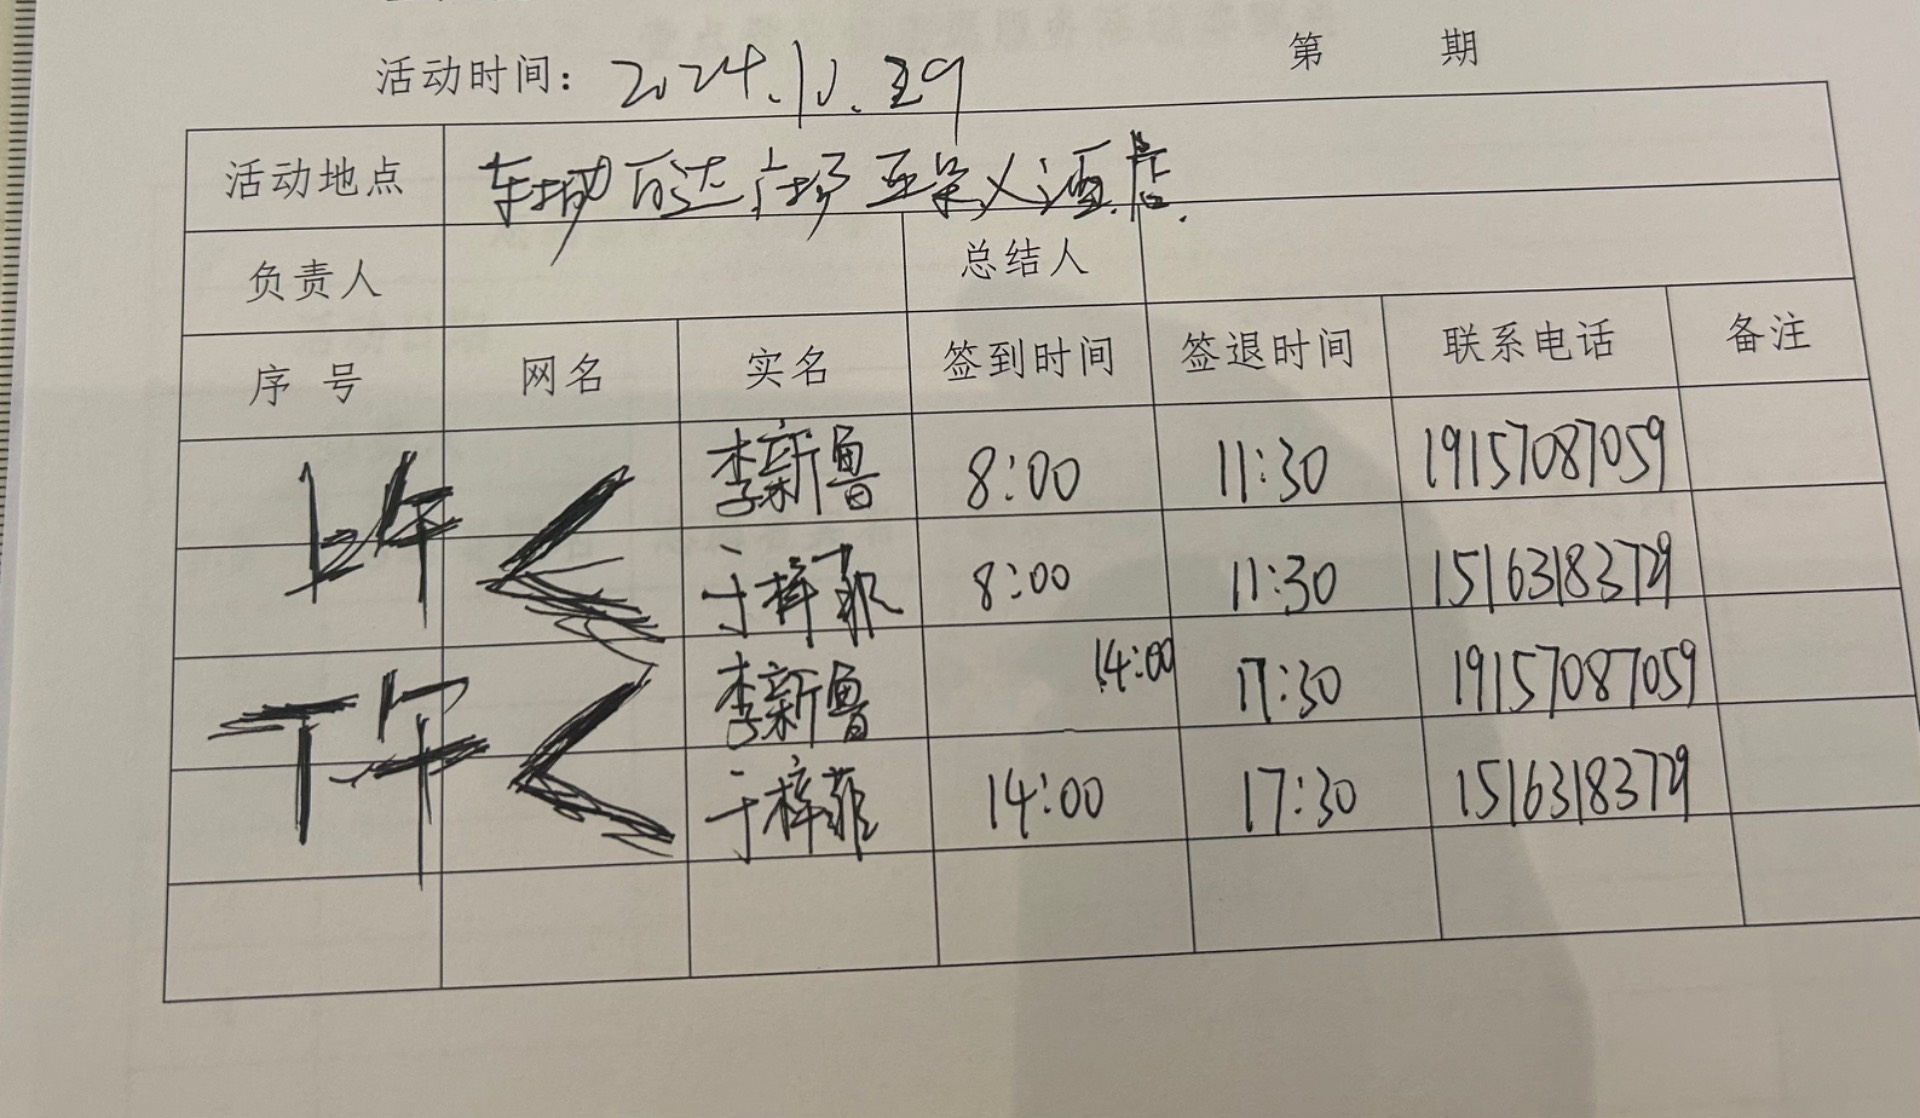 活动时间: 2024.10.29 第 期
活动地点 东城万达广场亚朵X酒店.
负责人 总结人
序号 网名 实名 签到时间 签退时间 联系电话 备注
上午 < 李新鲁 8:00 11:30 19157087059
于梓菲 8:00 11:30 15163183729
下午 < 李新鲁 14:00 17:30 19157087059
于梓菲 14:00 17:30 15163183729